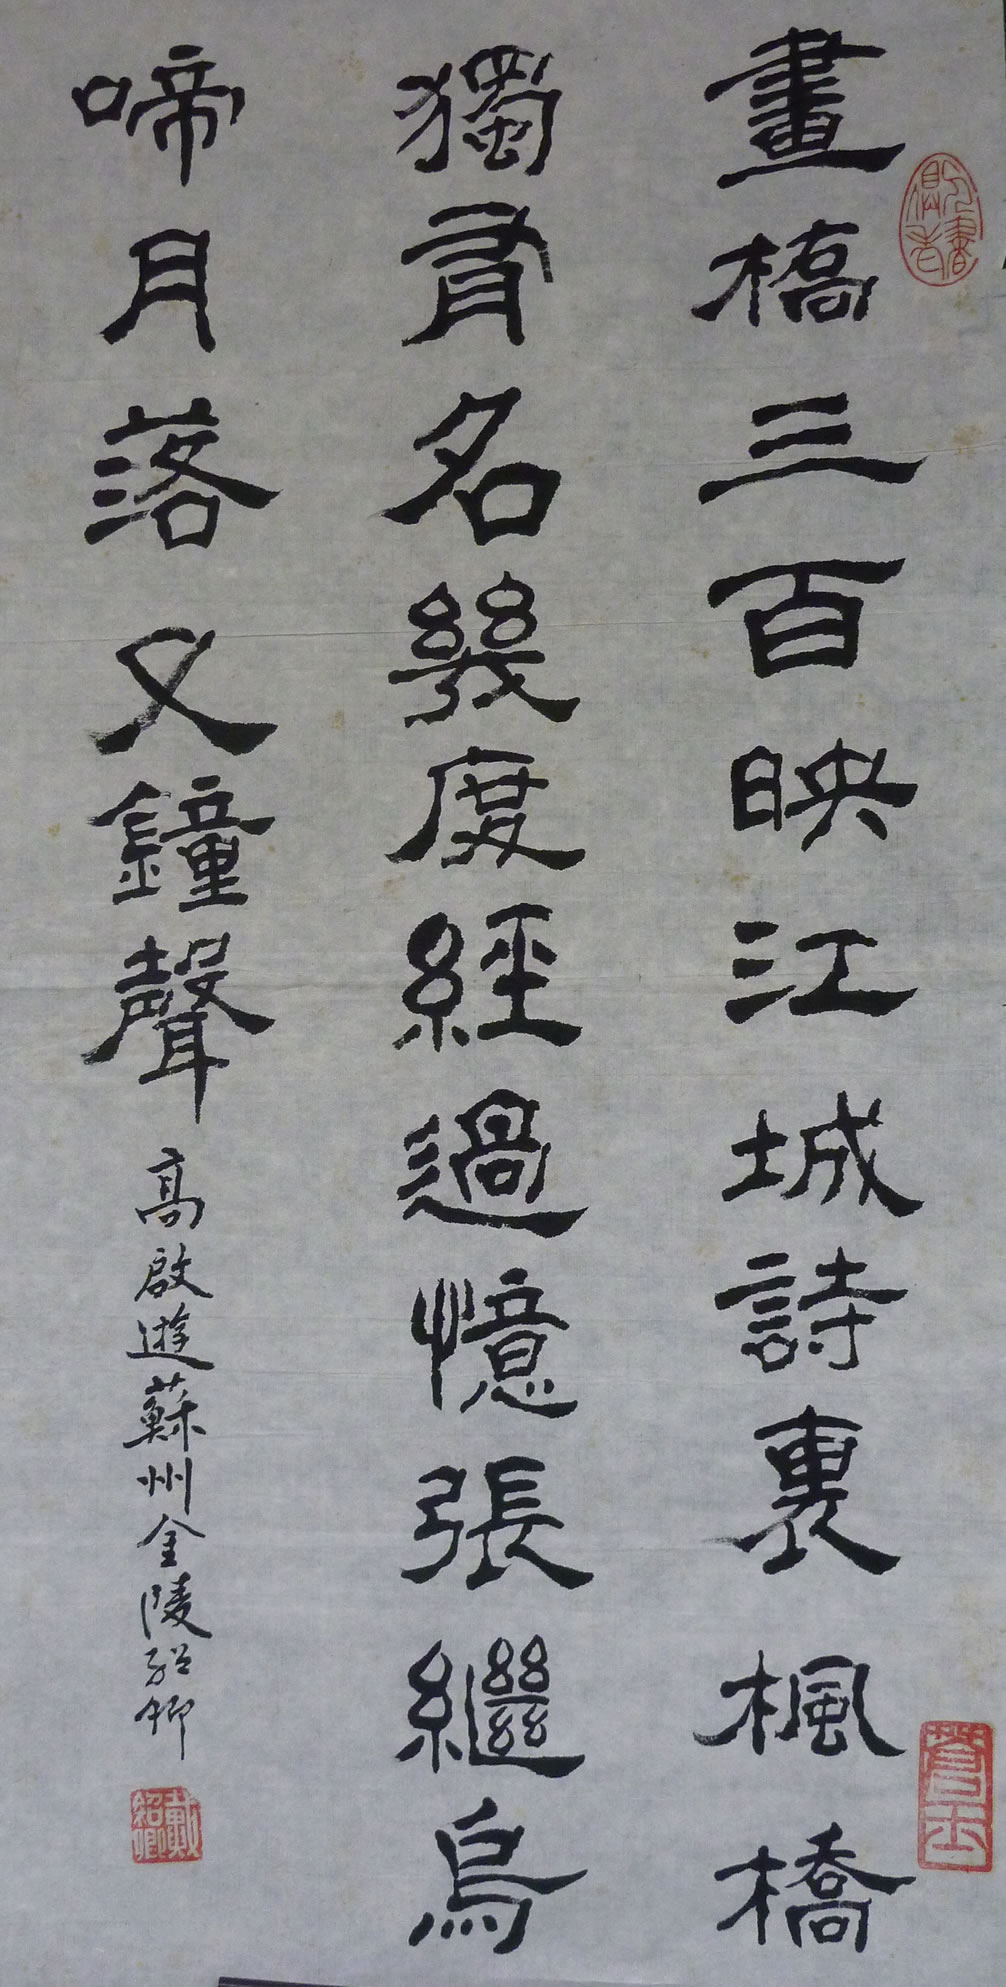 畫橋三百映江城詩裏楓橋
獨有名幾度經過憶張繼烏
啼月落又鐘聲
高啟遊蘇州金陵紹卿
戴紹卿